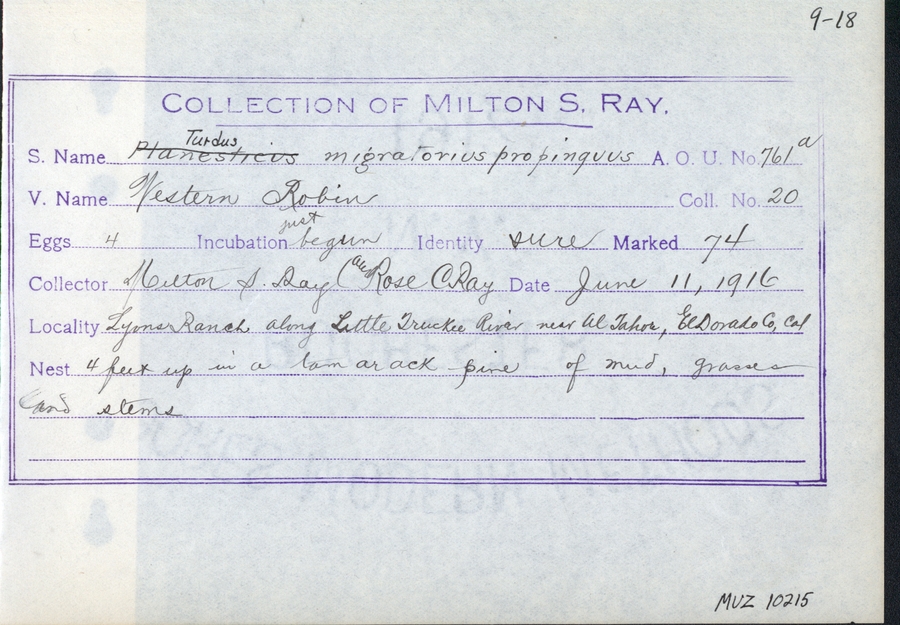 9-18
COLLECTION OF MILTON S. RAY.
Turdus
S. Name Planesticus migratorius propinquus A. O. U. No. 761a
V. Name Western Robin Coll. No. 20
just
Eggs 4 Incubation begun Identity sure Marked 74
Collector Milton S. Ray (and Rose C Ray Date June 11, 1916
Locality Lyons Ranch along Little Truckee River near Al Tahoe, El Dorado Co, Cal
Nest 4 feet up in a tamarack pine of mud, grasses
and stems
MVZ 10215